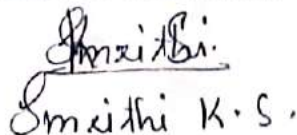 Smrithi.
Smrithi K. S.